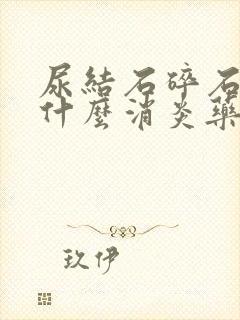 尿結石碎石
什麼消炎藥
玖伊